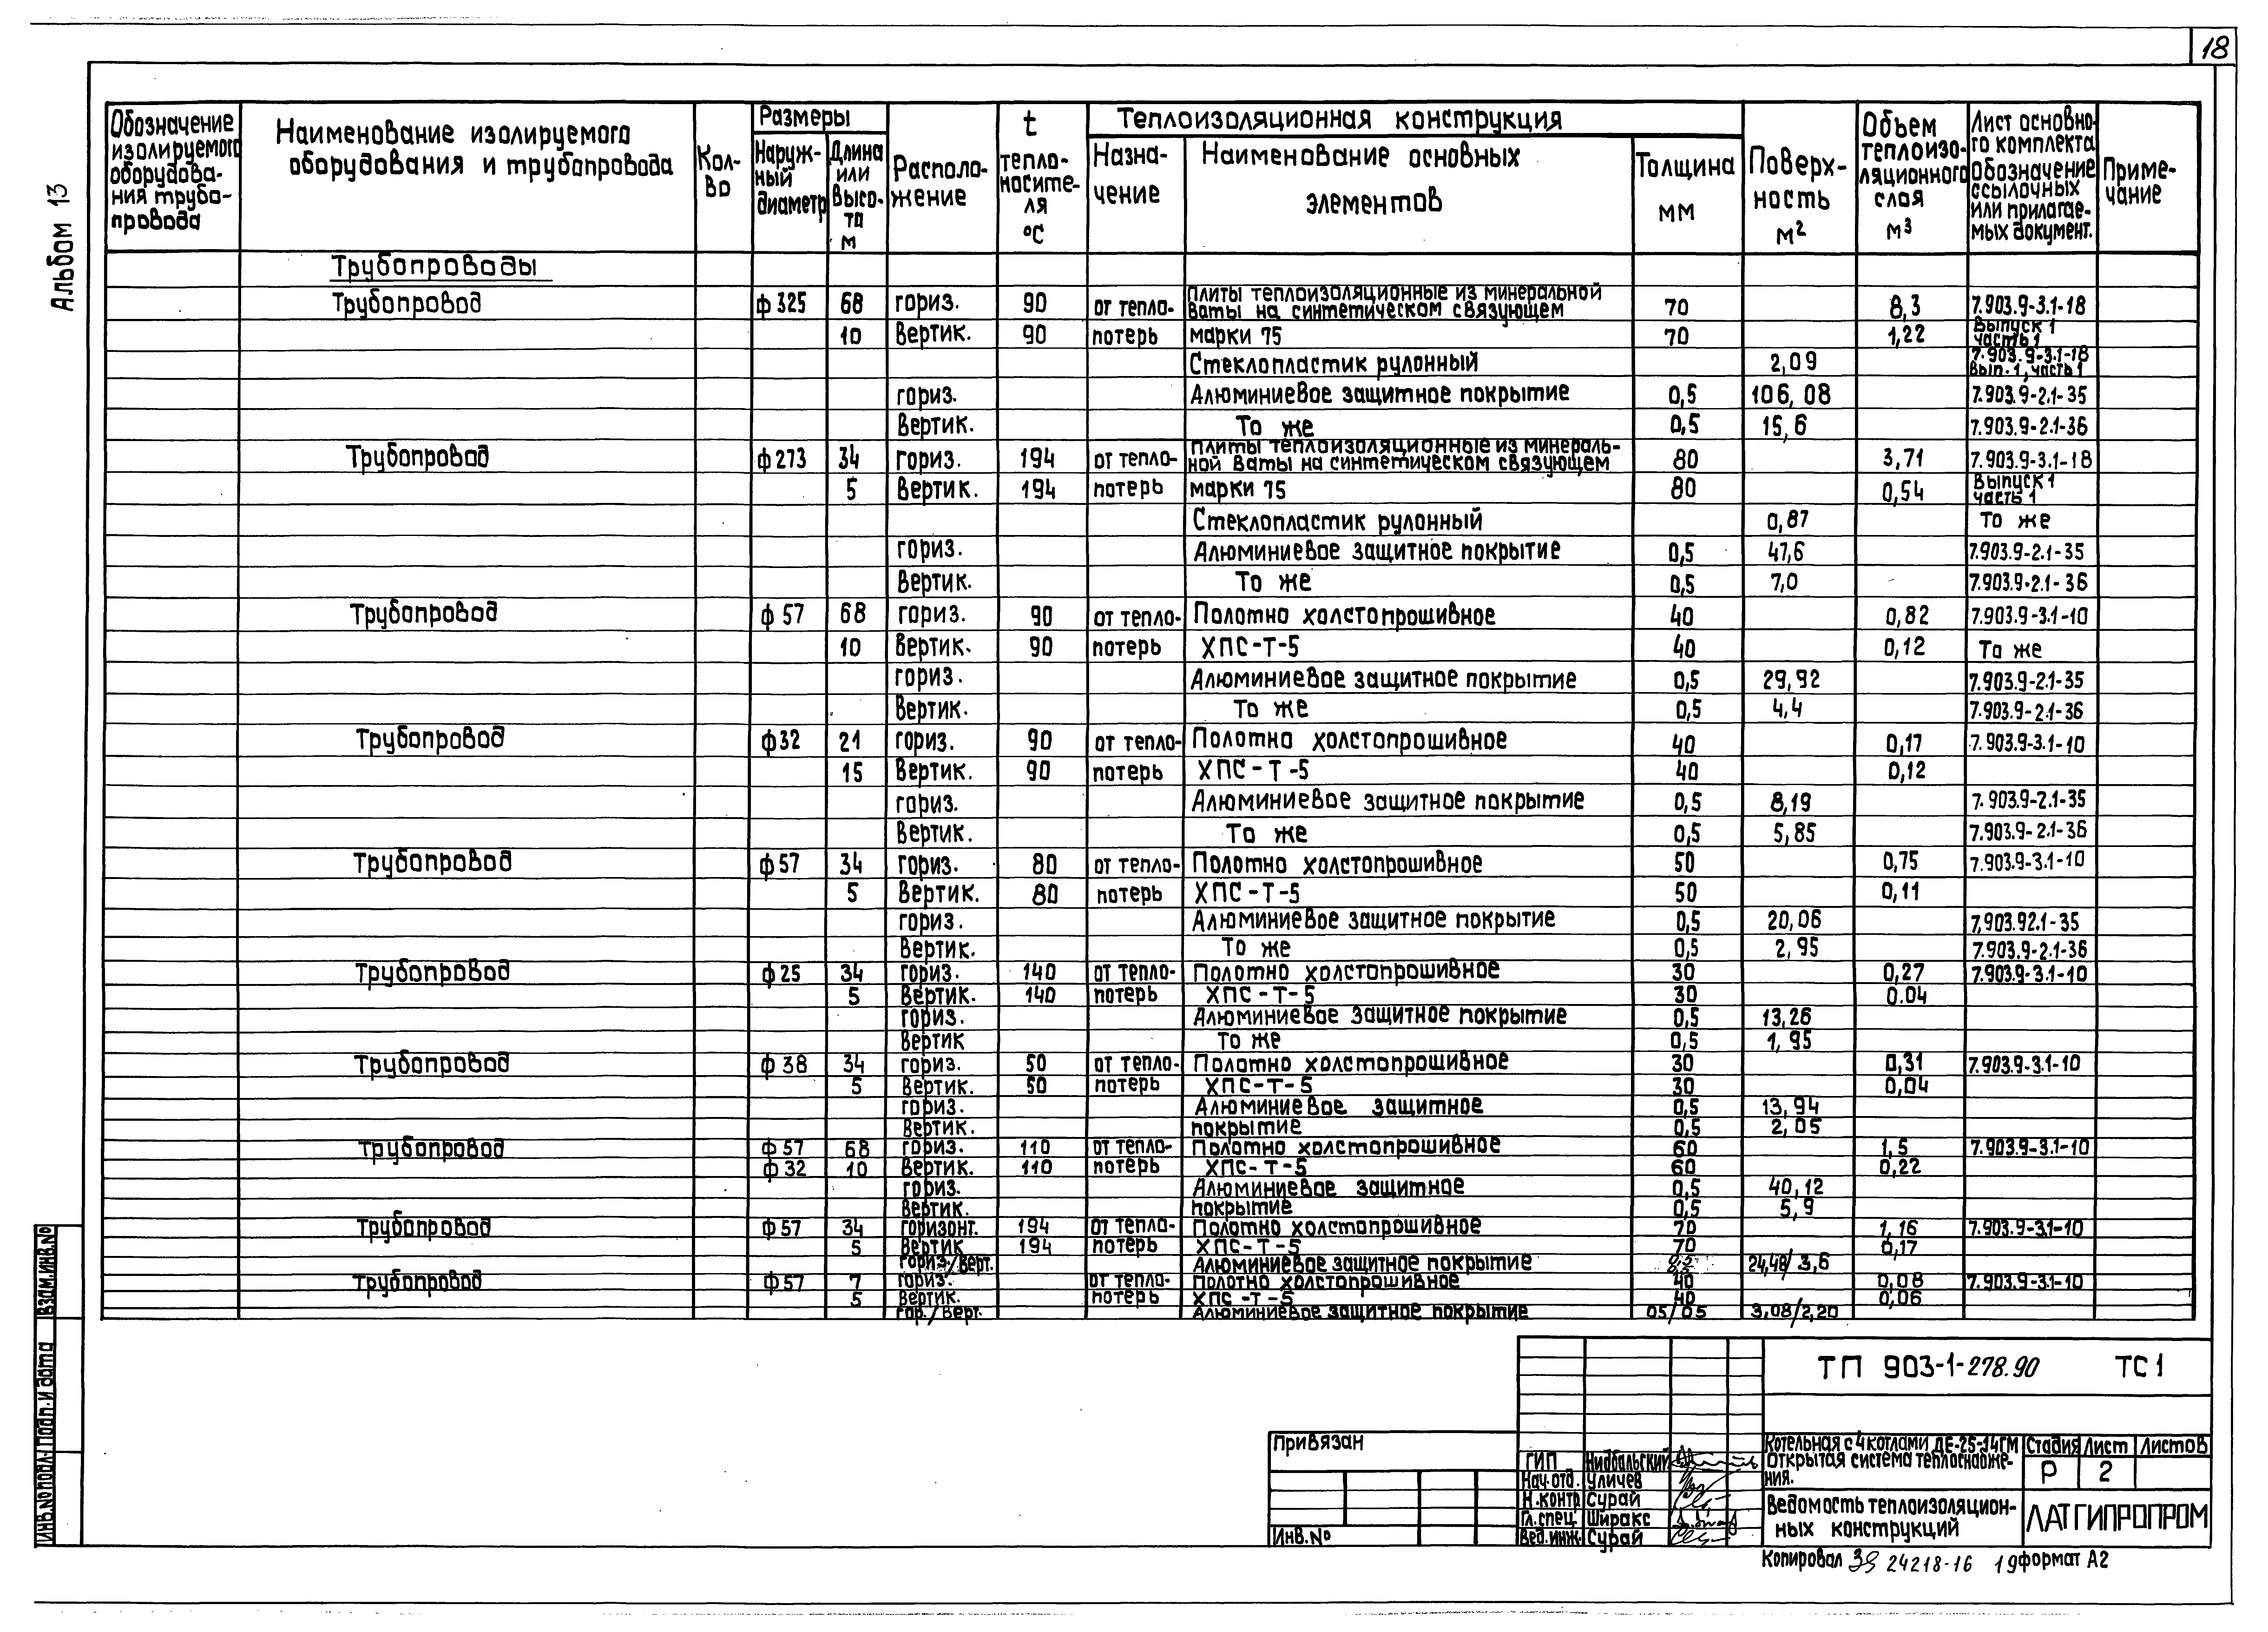 18
Альбом 13
Обозначение изолируемого оборудования трубопровода | Наименование изолируемого оборудования и трубопровода | Кол-во | Размеры | Наружный диаметр | Длина или высота м | Расположение | t теплоносителя °С | Теплоизоляционная конструкция | Назначение | Наименование основных элементов | Толщина мм | Поверхность м² | Объем теплоизоляционного слоя м³ | Лист основного комплекта обозначение ссылочных или прилагаемых документ. | Примечание
Трубопроводы
Трубопровод ф 325 68 гориз. 90 от тепло- Плиты теплоизоляционные из минеральной ваты на синтетическом связующем 70 8,3 7.903.9-3.1-18
10 Вертик. 90 потерь марки 75 70 1,22 Выпуск 1 часть 1
Стеклопластик рулонный 2,09 7.903.9-3.1-18 Вып. 1, часть 1
гориз. Алюминиевое защитное покрытие 0,5 106,08 7.903.9-2.1-35
Вертик. То же 0,5 15,6 7.903.9-2.1-36
Трубопровод ф 273 34 гориз. 194 от тепло- Плиты теплоизоляционные из минераль-ной ваты на синтетическом связующем 80 3,71 7.903.9-3.1-18
5 Вертик. 194 потерь марки 75 80 0,54 Выпуск 1 часть 1
Стеклопластик рулонный 0,87 То же
гориз. Алюминиевое защитное покрытие 0,5 47,6 7.903.9-2.1-35
Вертик. То же 0,5 7,0 7.903.9-2.1-36
Трубопровод ф 57 68 гориз. 90 от тепло- Полотно холстопрошивное 40 0,82 7.903.9-3.1-10
10 Вертик. 90 потерь ХПС-Т-5 40 0,12 То же
гориз. Алюминиевое защитное покрытие 0,5 29,92 7.903.9-2.1-35
Вертик. То же 0,5 4,4 7.903.9-2.1-36
Трубопровод ф 32 21 гориз. 90 от тепло- Полотно холстопрошивное 40 0,17 7.903.9-3.1-10
15 Вертик. 90 потерь ХПС-Т-5 40 0,12
гориз. Алюминиевое защитное покрытие 0,5 8,19 7.903.9-2.1-35
Вертик. То же 0,5 5,85 7.903.9-2.1-36
Трубопровод ф 57 34 гориз. 80 от тепло- Полотно холстопрошивное 50 0,75 7.903.9-3.1-10
5 Вертик. 80 потерь ХПС-Т-5 50 0,11
гориз. Алюминиевое защитное покрытие 0,5 20,06 7,903.92.1-35
Вертик. То же 0,5 2,95 7.903.9-2.1-36
Трубопровод ф 25 34 гориз. 140 от тепло- Полотно холстопрошивное 30 0,27 7.903.9-3.1-10
5 Вертик. 140 потерь ХПС-Т-5 30 0.04
гориз. Алюминиевое защитное покрытие 0,5 13,26
Вертик То же 0,5 1,95
Трубопровод ф 38 34 гориз. 50 от тепло- Полотно холстопрошивное 30 0,31 7.903.9-3.1-10
5 Вертик. 50 потерь ХПС-Т-5 30 0,04
гориз. Алюминиевое защитное 0,5 13,94
Вертик. покрытие 0,5 2,05
Трубопровод ф 57 68 гориз. 110 от тепло- Полотно холстопрошивное 60 1,5 7.903.9-3.1-10
ф 32 10 Вертик. 110 потерь ХПС-Т-5 60 0,22
гориз. Алюминиевое защитное 0,5 40,12
Вертик. покрытие 0,5 5,9
Трубопровод ф 57 34 горизонт. 194 от тепло- Полотно холстопрошивное 70 1,16 7.903.9-3.1-10
5 Вертик 194 потерь ХПС-Т-5 70 0,17
гориз./верт. Алюминиевое защитное покрытие 24,48/3,6
Трубопровод ф 57 7 гориз. от тепло- Полотно холстопрошивное 40 0,08 7.903.9-3.1-10
5 Вертик. потерь ХПС-Т-5 40 0,06
гор./верт. Алюминиевое защитное покрытие 05/05 3,08/2,20
ТП 903-1-278.90 ТС 1
Привязан
Инв.№
ГИП Нидбальский
Нач.отд. Уличев
Н.контр Сурай
Гл.спец. Ширакс
Вед.инж. Сурай
Котельная с 4 котлами ДЕ-25-14ГМ
Открытая система теплоснабже-
ния.
Стадия Лист Листов
Р 2
Ведомость теплоизоляцион-
ных конструкций
ЛАТГИПРОПРОМ
Копировал 24218-16 19 формат А2
Инв.№ подл. Подп. и дата Взам.инв.№